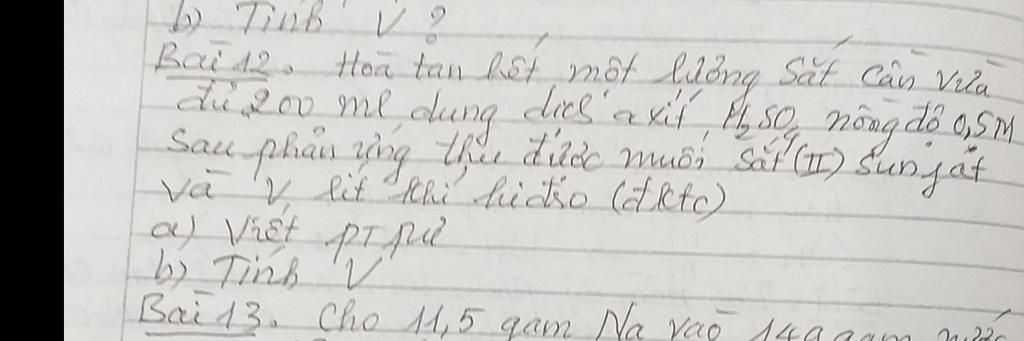 b) Tính V?
Bài 12. Hoà tan hết một lượng Sắt cần vừa
đủ 200 ml dung dịch axít H₂SO₄ nồng độ 0,5M
Sau phản ứng thu được muối Sắt (II) Sunfat
và V lít khí hiđro (đktc)
a) Viết PTPƯ
b) Tính V
Bài 13. Cho 11,5 gam Na vào 149 gam nước